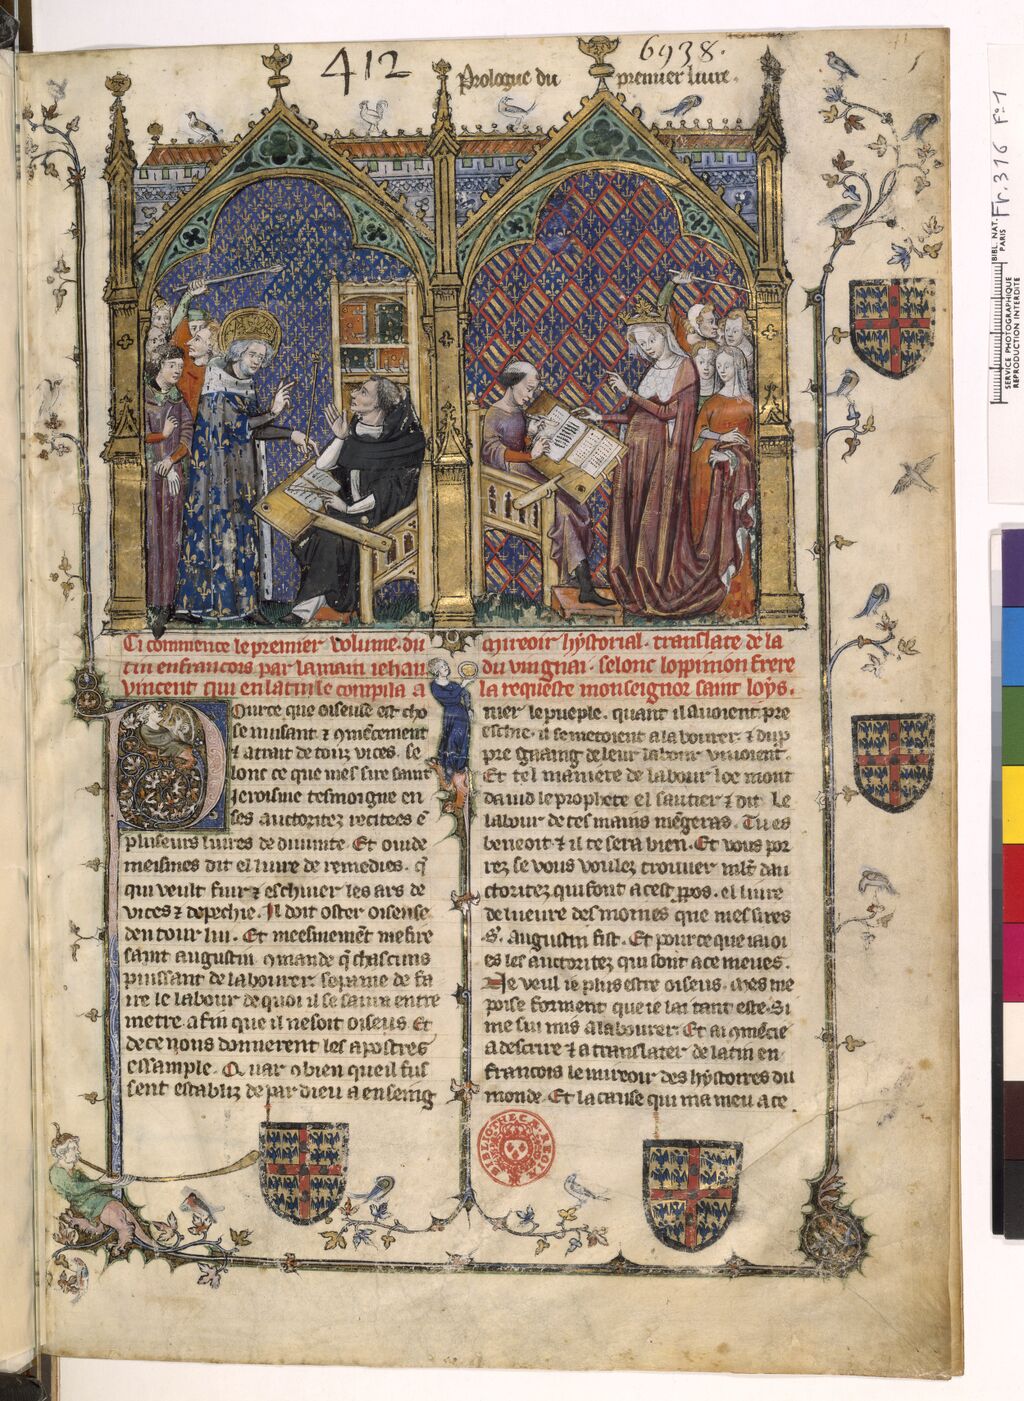 412
6938.
Prologue du premier liure.
1
Ci commence le premier volume du
mireoir hystorial. translate de la
tin en francois par la main iehan
du vingnai. selonc loppinion frere
vincent qui en latin le compila a
la requeste monseignor saint loys.
Pource que oiseuse est cho
se nuisant ⁊ cōmēcement
⁊ atrait de touz vices. se
lonc ce que mes sire saint
Jeroisme tesmoigne en
ses auctoritez recitees ē
pluseurs liures de diuinite. Et ouide
meismes dit el liure de remedies. q̄
qui veult fuir ⁊ eschiuer les ars de
vices ⁊ depechie. Il doit oster oiseuse
den tour lui. Et meesmemēt me sire
saint augustin cōmande q̄ chascuns
puissant de labourer. se paine de fa
ire le labour de quoi il se saura entre
metre. a fin que il ne soit oiseus. Et
de ce nous donnerent les apostres
essample. Quar cōbien que il fus
sent establiz de par dieu a enseig
nier le pueple. quant il auoient pre
eschie. il se metoient a labourer ⁊ du p̄p
pre gaaing de leur labour viuoient.
Et tel maniere de labour loe mont
dauid le prophete el sautier ⁊ dit. Le
labour de tes mains mēgeras. Tu es
beneoit ⁊ il te sera bien. Et vous por
rez se vous voulez trouuer ml't dau
ctoritez qui sont a cest p̄pos. el liure
de lueure des moines que mes sires
S. augustin fist. Et pour ce que iai oi
es les auctoritez qui sont a ce meues.
Ne veul ie plus estre oiseus. mes me
poise forment que ie lai tant este. Si
me sui mis a labourer. Et ai cōmēcie
a descrire ⁊ a translater de latin en
francois le mireoir des hystoires du
monde. Et la cause qui ma meu a ce.
BIBLIOTHECÆ REGIÆ
BIBL. NAT. PARIS
Fr. 316 F-1
SERVICE PHOTOGRAPHIQUE
REPRODUCTION INTERDITE